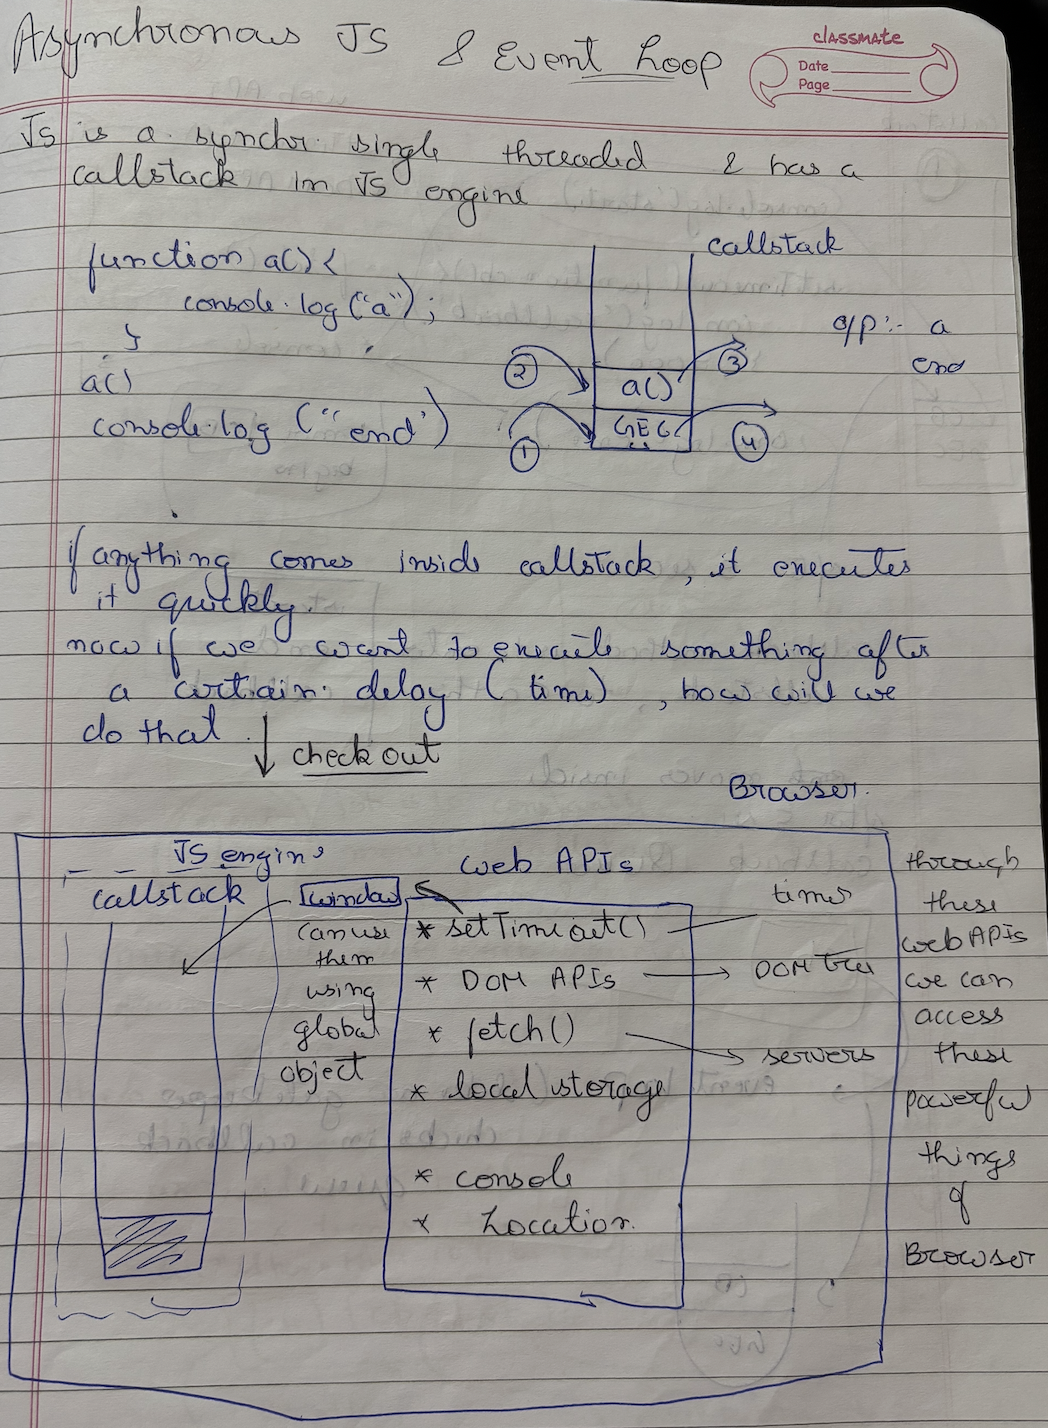 Asynchronous JS & Event Loop
classmate
Date
Page
JS is a synchr. single threaded & has a
callstack in JS engine
function a() {
console.log("a");
}
a()
console.log ("end")
callstack
o/p :- a
end
②
a()
③
①
GEC
④
if anything comes inside callstack, it executes
it quickly.
now if we want to execute something after
a certain delay (time), how will we
do that.
↓ check out
Browser.
JS engine
callstack
window
can use
them
using
global
object
web APIs
* setTimeout()
* DOM APIs
* fetch()
* local storage
* console
* Location.
timer
DOM Tree
servers
through
these
web APIs
we can
access
these
powerful
things
of
Browser